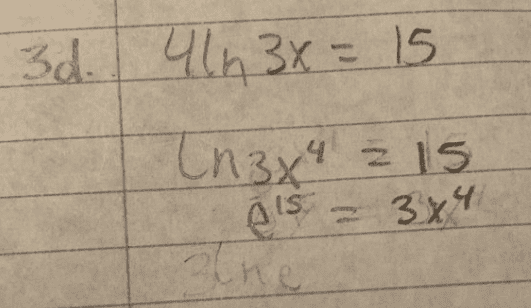 3d. 4ln 3x = 15
ln 3x⁴ = 15
e¹⁵ = 3x⁴
3lne